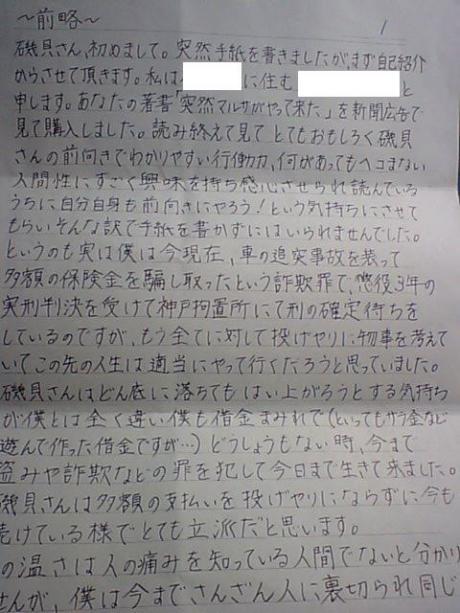 ～前略～
1
磯貝さん、初めまして。突然手紙を書きましたが、まず自己紹介
からさせて頂きます。私は に住む と
申します。あなたの著書「突然マルサがやって来た」を新聞広告で
見て購入しました。読み終えて見てとてもおもしろく磯貝
さんの前向きでわかりやすい行働力、何があってもヘコまない
人間性にすごく興味を持ち感心させられ読んでいる
うちに自分自身も前向きにやろう!という気持ちにさせて
もらいそんな訳で手紙を書かずにはいられませんでした。
というのも実は僕は今現在、車の追突事故を装って
多額の保険金を騙し取ったという詐欺罪で、懲役3年の
実刑判決を受けて神戸拘置所にて刑の確定待ちを
しているのですが、もう全てに対して投げやりに物事を考えて
いてこの先の人生は適当にやって行くだろうと思っていました。
磯貝さんはどん底に落ちてもはい上がろうとする気持ち
が僕とは全く違い僕も借金まみれで(といってもサラ金など
遊んで作った借金ですが…)どうしょうもない時、今まで
盗みや詐欺などの罪を犯して今日まで生きて来ました。
磯貝さんは多額の支払いを投げやりにならずに今も
続けている様でとても立派だと思います。
の温さは人の痛みを知っている人間でないと分かり
せんが、僕は今までさんざん人に裏切られ同じ